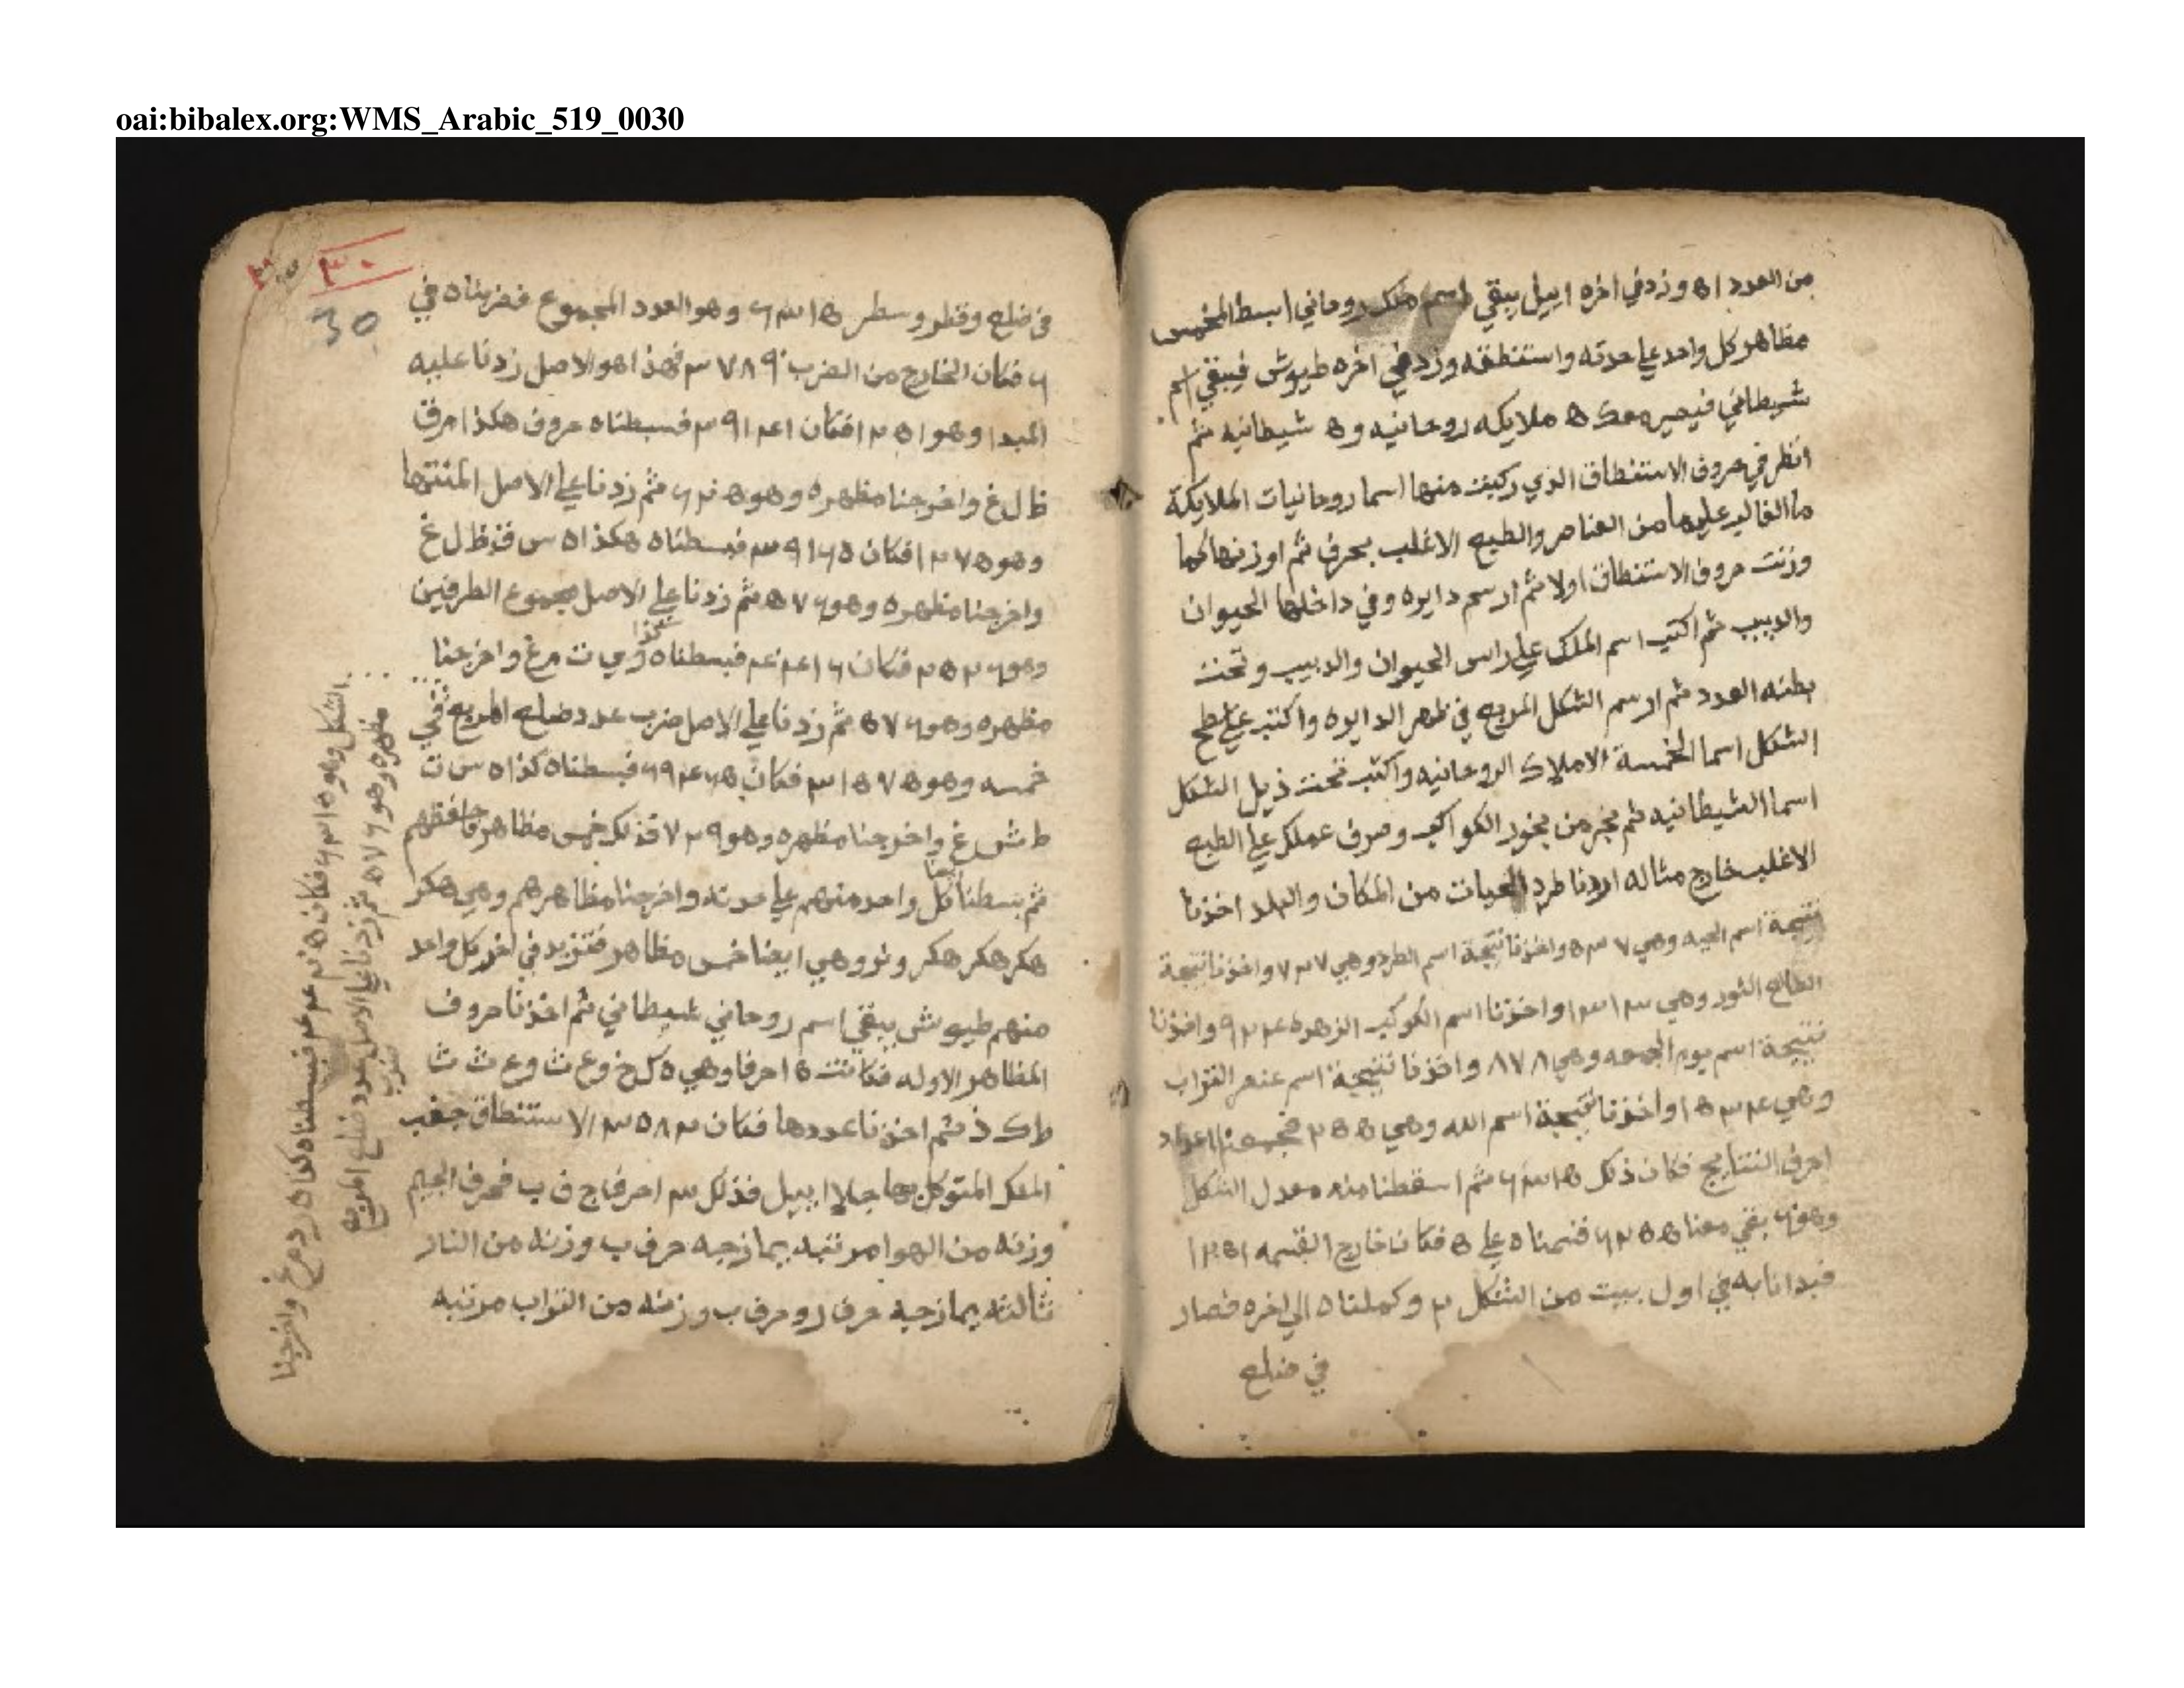 oai:bibalex.org:WMS_Arabic_519_0030
من العدد ٥١ وزد في اخره ابييل يبقي اسم ملك روحاني ابسط المخمس
مظاهر كل واحد علي حدته واستنطقه وزد في اخره طيوش فيبقي اسم
شيطاني فيصير معك ٥ ملايكه روحانيه و٥ شيطانيه ثم
انظر في حروف الاستنطاق الذي ركبت منها اسما روحانيات الملايكة
ما الغالب عليها من العناصر والطبع الاغلب بحرف ثم اوزنها كما
وزنت حروف الاستنطاق اولا ثم ارسم دايره وفي داخلها الحيوان
والدبيب ثم اكتب اسم الملك علي راس الحيوان والدبيب وتحت
بطنه العدد ثم ارسم الشكل المربع في ظهر الدايره واكتب علي سطح
الشكل اسما الخمسة الاملاك الروحانيه واكتب تحت ذيل الشكل
اسما الشيطانيه ثم بخر من بخور الكواكب وصرف عملك علي الطبع
الاغلب خارج مثاله اردنا طرد الحيات من المكان والبلد اخذنا
نتيجة اسم الحيه وهي ٥٣٧ واخذنا نتيجة اسم الطرد وهي ٧٢٧ واخذنا نتيجة
الطالع الثور وهي ١٣١٣ واخذنا اسم الكوكب الزهره ٩٢٤ واخذنا
نتيجة اسم يوم الجمعه وهي ٨٧٨ واخذنا نتيجة اسم عنصر التراب
وهي ١٥٣٤ واخذنا نتيجة اسم الله وهي ٢٥٥ فجمعنا اعداد
احرف النتايج فكان ذلك ٦٣١٥ ثم اسقطنا منه معدل الشكل
وهو ٦٠ بقي معنا ٦٢٥٥ قسمناه علي ٥ فكان خارج القسمه ١٢٥١
فبدانا به في اول بيت من الشكل ٢ وكملناه الي اخره فصار
في ضلع
٣٠
30
في ضلع وقطر وسطر ٦٣١٥ وهو العدد المجموع فضربناه في
٦ فكان الخارج من الضرب ٣٧٨٩٠ فهذا هو الاصل زدنا عليه
المبدا وهو ١٢٥١ فكان ٣٩١٤١ فبسطناه حروف هكذا ا م ق
ظ ل غ واخرجنا مظهره وهو ٦٢٠٥ ثم زدنا علي الاصل المنتها
وهو ١٢٧٥ فكان ٣٩١٦٥ فبسطناه هكذا ه س ق ظ ل غ
واخرجنا مظهره وهو ٥٧٦ ثم زدنا علي الاصل مجموع الطرفين
وهو ٢٥٢٦ فكان ٤٠٤١٦ فبسطناه كذا و ي ت م غ واخرجنا
مظهره وهو ٥٧٦ ثم زدنا علي الاصل ضرب عدد ضلع المربع في
خمسه وهو ٣١٥٧٥ فكان ٦٩٤٦٥ فبسطناه كذا ه س ت
ط ش غ واخرجنا مظهره وهو ٧٢٩ فذلك خمس مظاهر فاحفظهم
ثم بسطنا كل واحد منهم علي حدته واخرجنا مظاهرهم وهي هكر
هكر هكر هكر ونو وهي ايضا خمس مظاهر فتزيد في اخر كل واحد
منهم طيوش يبقي اسم روحاني شيطاني ثم اخذنا حروف
المظاهر الاوله فكانت ١٥ حرفا وهي ه ك خ و ع ث و ع ث ث
ط ك ذ ثم اخذنا عددها فكان ٣٥٨٢ الاستنطاق جفب
الملك المتوكل بها جلاابييل فذلك ٣ احرف ج ف ب فحرف الجيم
وزنه من الهوا مرتبه يمازجه حرف ب وزنه من النار
ثالثه يمازجه حرف ر وحرف ب وزنه من التراب مرتبه
الشكل وهو ٦٣١٥ فكان فبسطناه كذا ه ر د م غ واخرجنا
مظهره وهو ٥٧٦ ثم زدنا علي الاصل عدد ضلع المربع